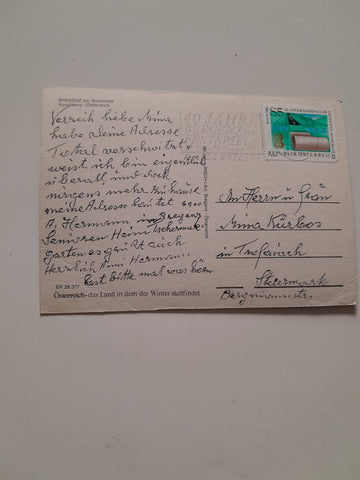 BREGENZ am Bodensee
Vorarlberg - Österreich
Verzeih liebe Mina
habe deine Adresse
Total verschwitzt
weist ich bin eigentlich
überall und doch
nirgens mehr zu hause
meine Adresse lautet 6900
A. Herrmann in Bregenz
Senioren Heim Tschermak
garten es grüßt euch
Herzlich Hermann
Bitte mal was hören
BR 28.377
Österreich - das Land in dem der Winter stattfindet
40 JAHRE
BREGENZER
FESTSPIELE
S5
REPUBLIK ÖSTERREICH
An Herrn u Frau
Mina Kürbos
in Trofaiach
Steiermark
Bergmannstr.